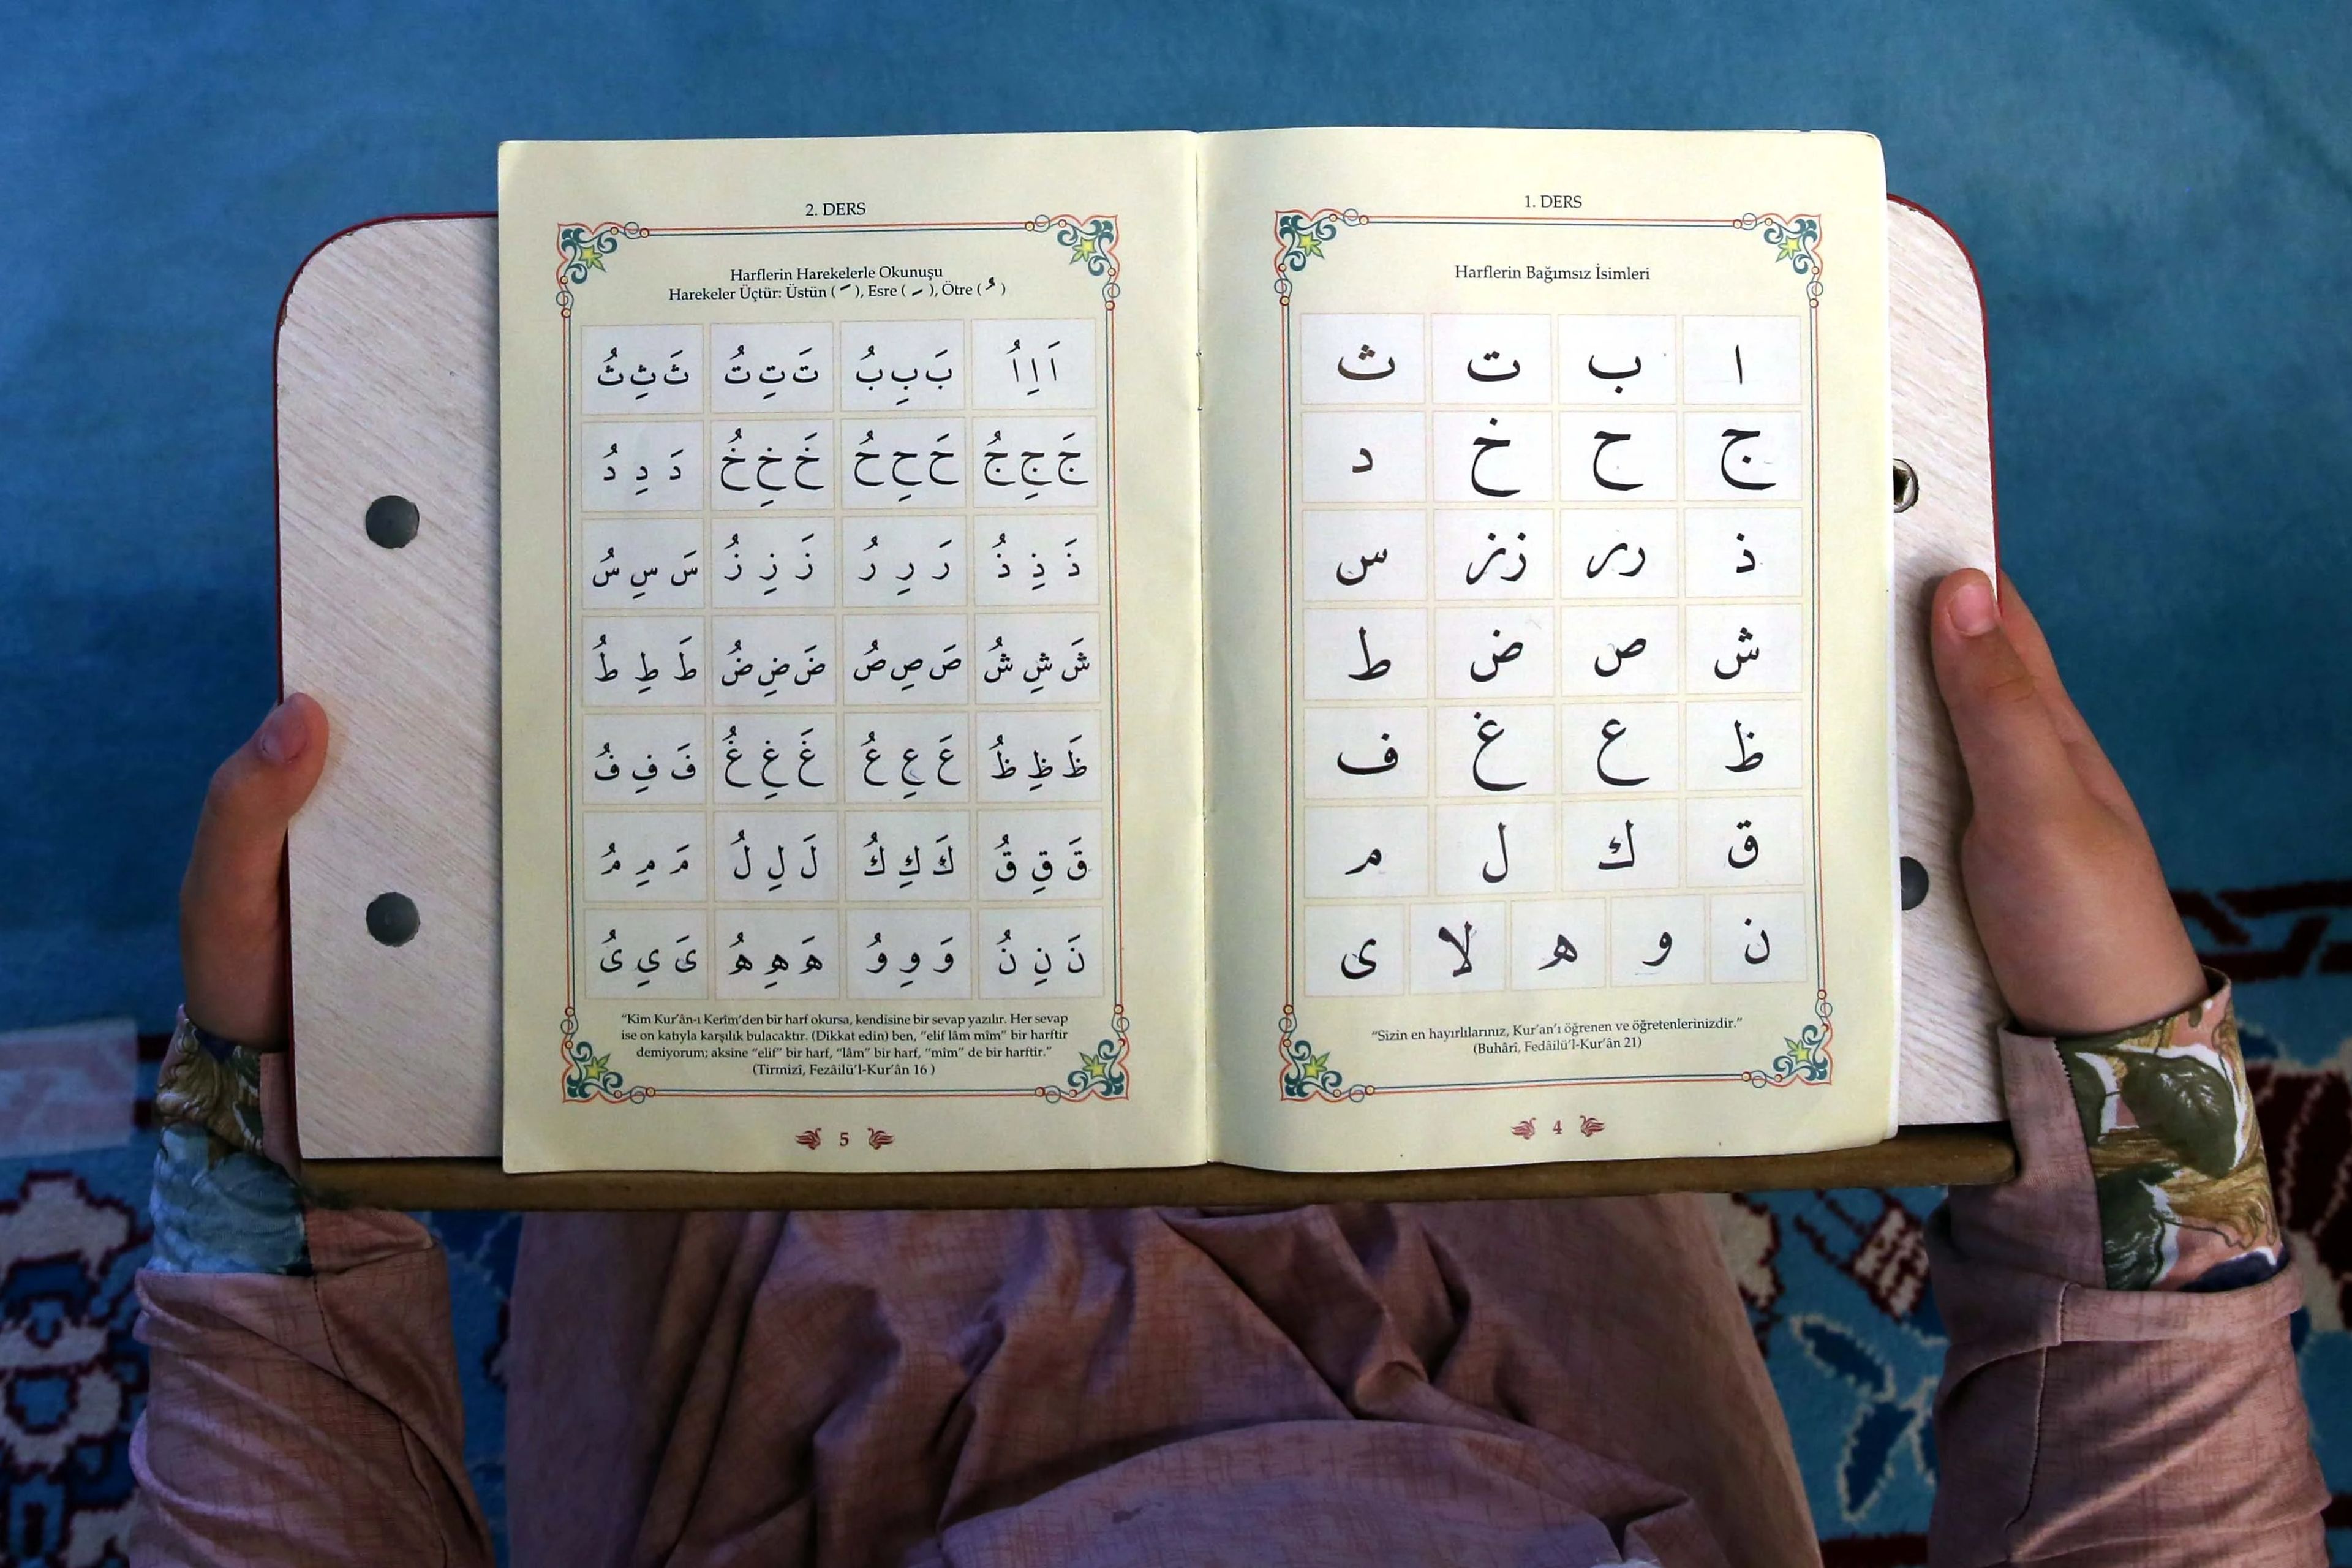 1. DERS
Harflerin Bağımsız İsimleri
ا ب ت ث
ج ح خ د
ذ رر زز س
ش ص ض ط
ظ ع غ ف
ق ك ل م
ن و ه لا ى
“Sizin en hayırlılarınız, Kur’an’ı öğrenen ve öğretenlerinizdir.”
(Buhârî, Fedâilü’l-Kur’ân 21)
4
2. DERS
Harflerin Harekelerle Okunuşu
Harekeler Üçtür: Üstün ( َ ), Esre ( ِ ), Ötre ( ُ )
اَ اِ اُ بَ بِ بُ تَ تِ تُ ثَ ثِ ثُ
جَ جِ جُ حَ حِ حُ خَ خِ خُ دَ دِ دُ
ذَ ذِ ذُ رَ رِ رُ زَ زِ زُ سَ سِ سُ
شَ شِ شُ صَ صِ صُ ضَ ضِ ضُ طَ طِ طُ
ظَ ظِ ظُ عَ عِ عُ غَ غِ غُ فَ فِ فُ
قَ قِ قُ كَ كِ كُ لَ لِ لُ مَ مِ مُ
نَ نِ نُ وَ وِ وُ هَ هِ هُ ىَ ىِ ىُ
“Kim Kur’ân-ı Kerîm’den bir harf okursa, kendisine bir sevap yazılır. Her sevap
ise on katıyla karşılık bulacaktır. (Dikkat edin) ben, “elif lâm mîm” bir harftir
demiyorum; aksine “elif” bir harf, “lâm” bir harf, “mîm” de bir harftir.”
(Tirmizî, Fezâilü’l-Kur’ân 16 )
5